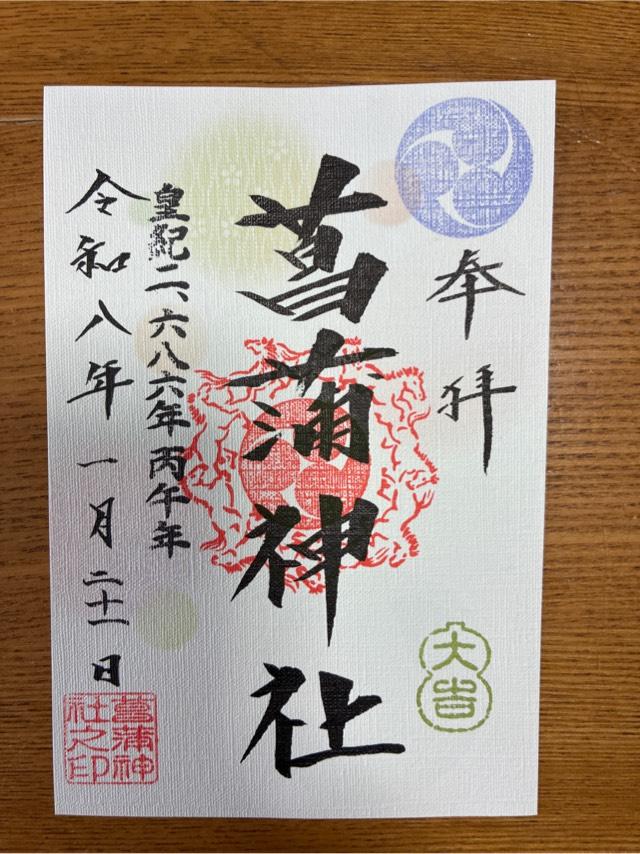 奉拝
菖蒲神社
皇紀二、六八六年丙午年
令和八年一月二十一日
大吉
菖蒲神
社之印